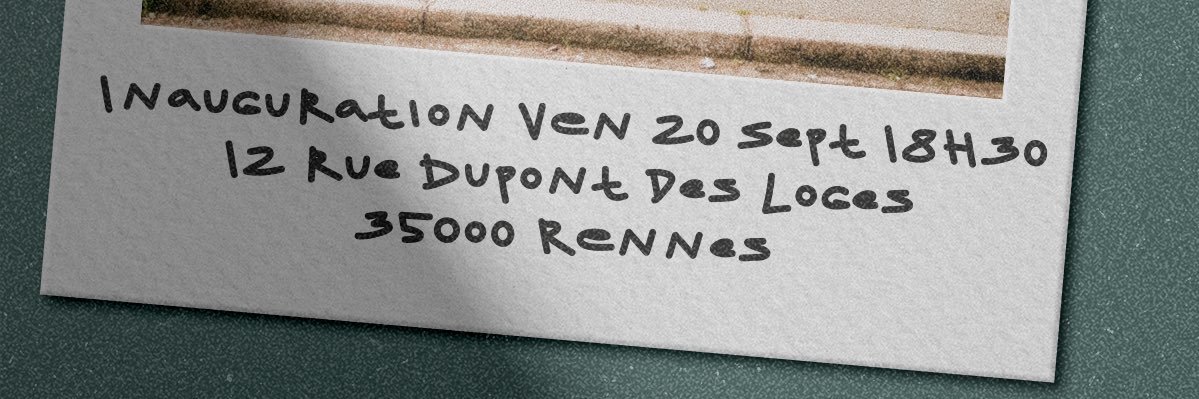 INaUGURatION VeN 20 Sept 18H30
12 Rue DUpONt Des LOGes
35000 ReNNes